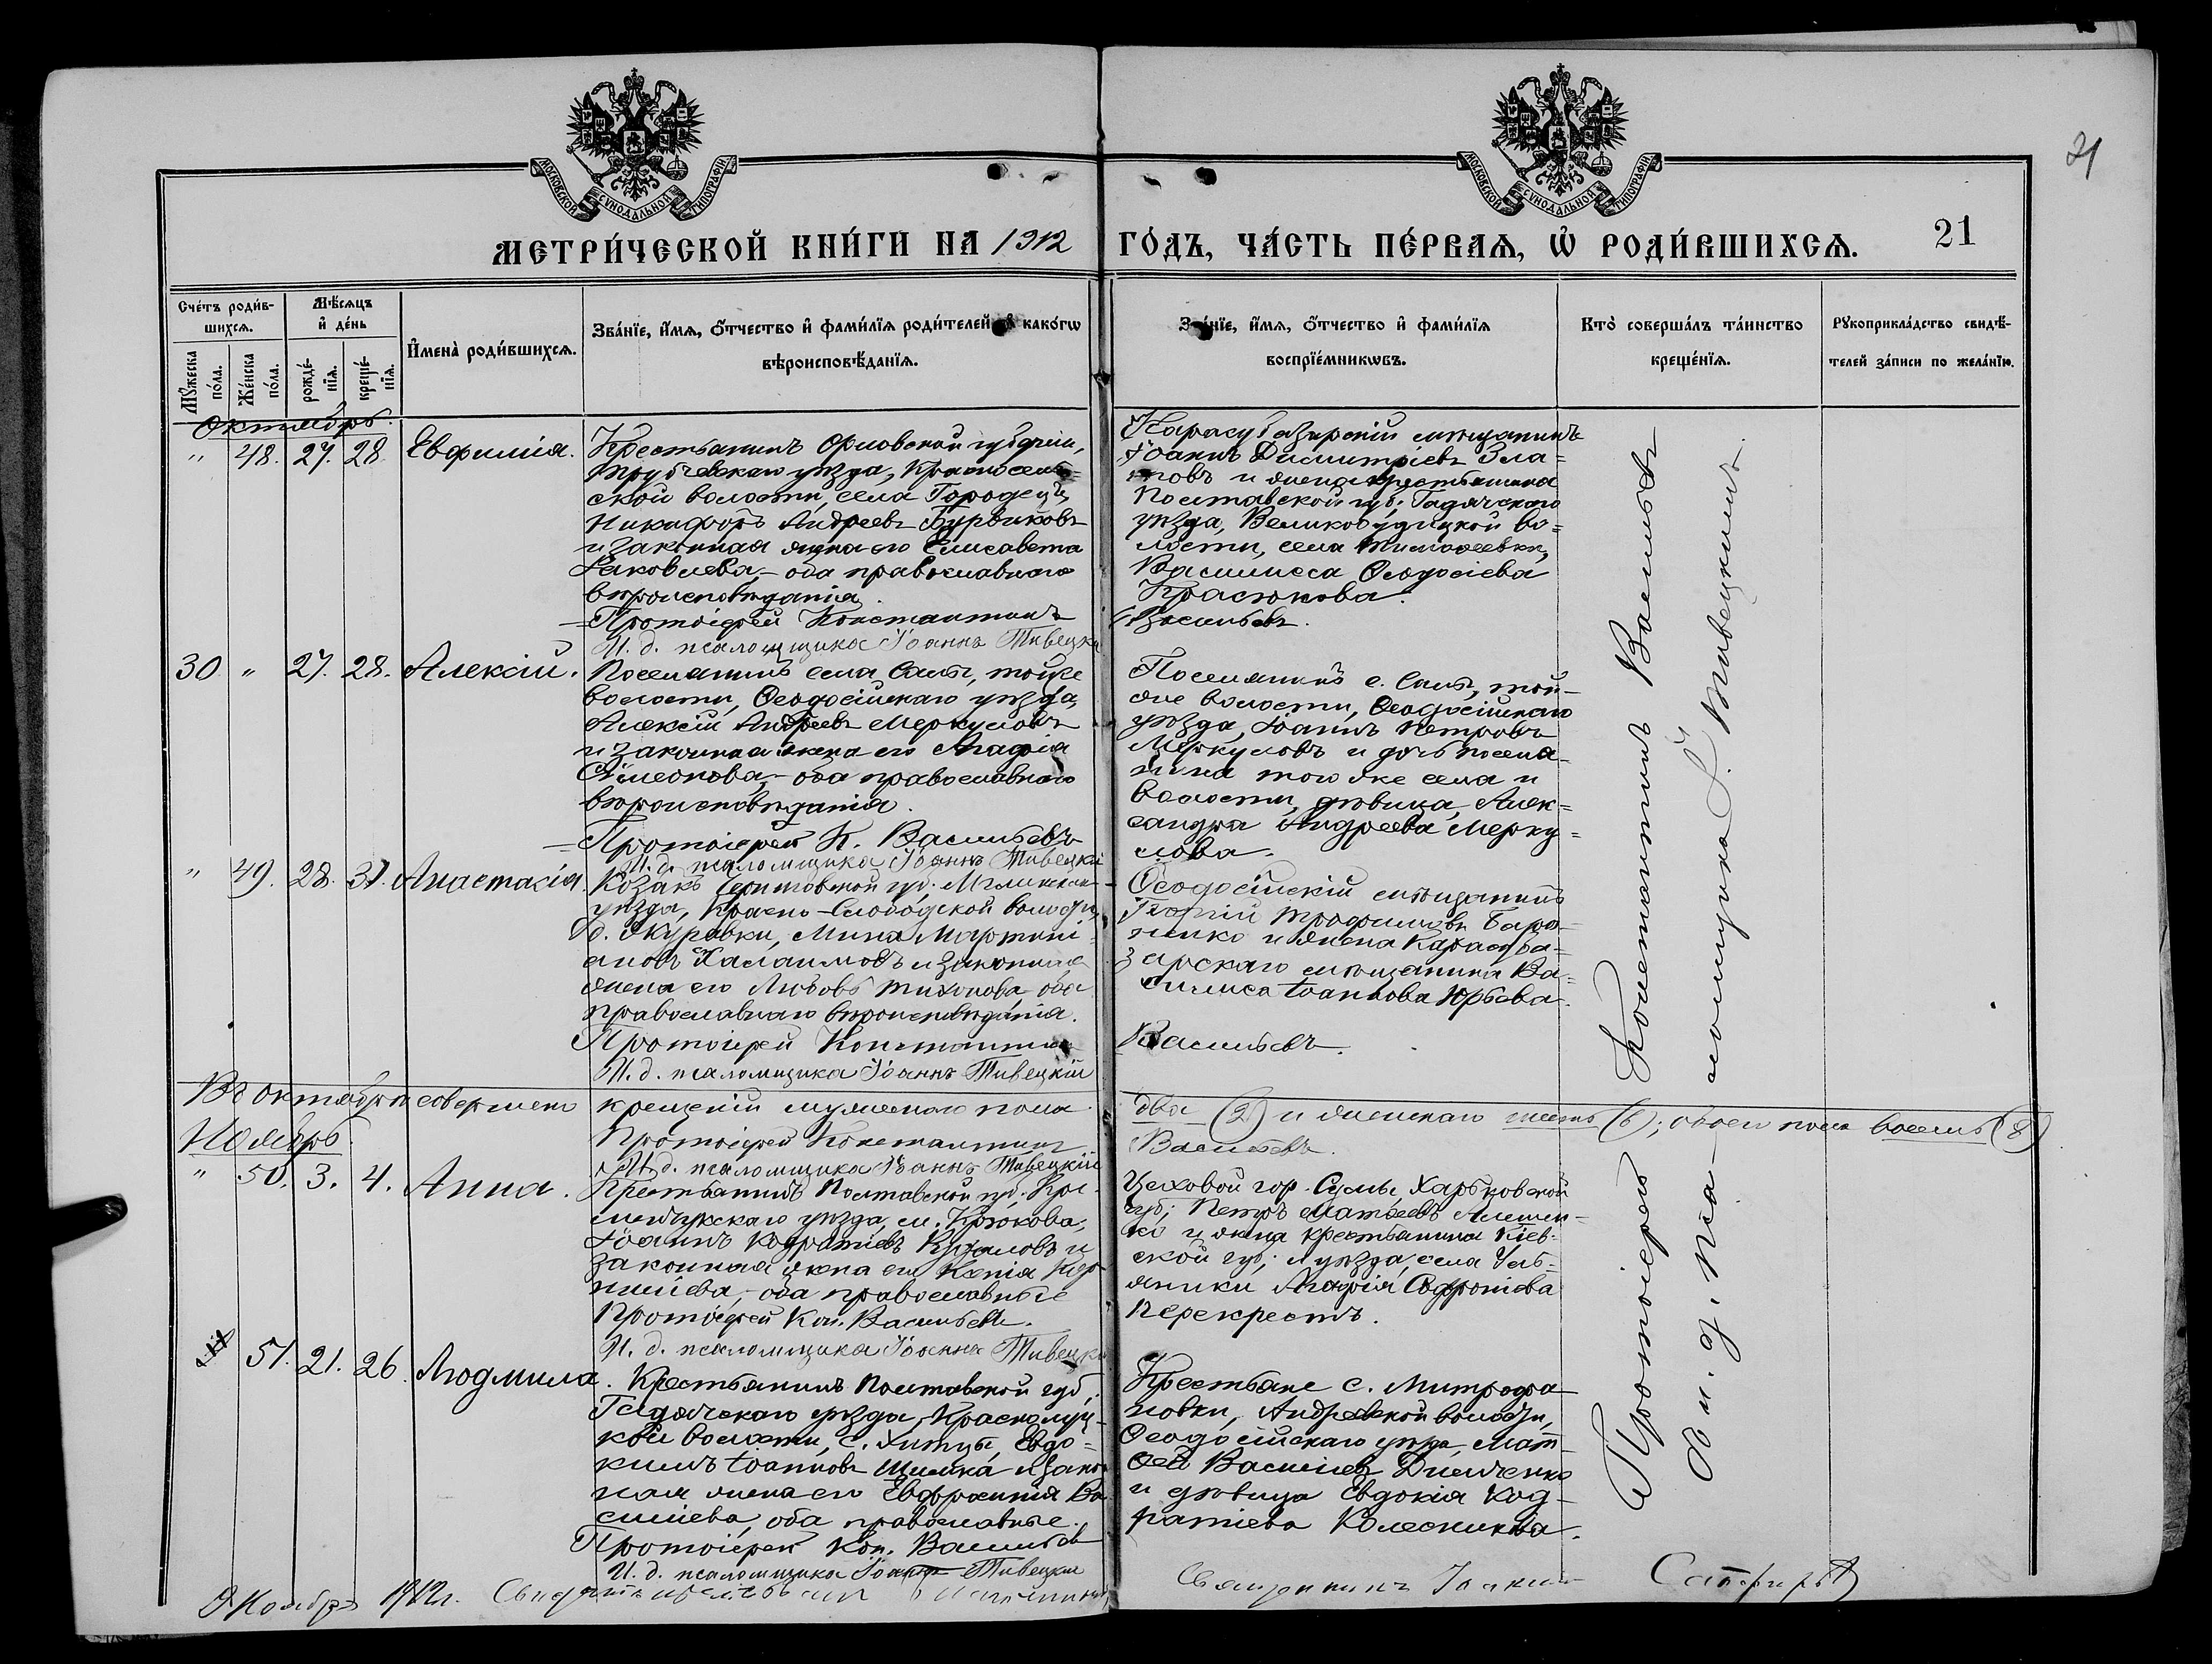 МОСКОВСКОЙ СѴНОДАЛЬНОЙ ТИПОГРАФІИ
МОСКОВСКОЙ СѴНОДАЛЬНОЙ ТИПОГРАФІИ
21
МЕТРИ́ЧЕСКОЙ КНИ́ГИ НА 1912 ГО́ДЪ, ЧА́СТЬ ПЕ́РВАѦ, Ѡ РОДИ́ВШИХСѦ. 21
Сче́тъ роди́в-
шихсѧ.
Мꙋ́жеска по́ла.
Же́нска по́ла.
Мѣ́сѧцъ и де́нь
рожде́-нїѧ.
креще́-нїѧ.
Имена̀ роди́вшихсѧ.
Зва́нїе, и́мѧ, о́тчество и фами́лїѧ роди́телей и како́гѡ
вѣроисповѣ́данїѧ.
Зва́нїе, и́мѧ, о́тчество и фами́лїѧ
воспрїе́мникѡвъ.
Кто̀ соверша́лъ та́инство
креще́нїѧ.
Рꙋкоприкла́дство свидѣ́-
телей за́писи по жела́нїю.
Октябрь.
" 48. 27. 28. Евфимія.
Крестьянинъ Орловской губерніи,
Трубчевскаго уѣзда, Красносель=
ской волости, села Городецъ,
Никифоръ Андреевъ Бурвиковъ
и законная жена его Елисавета
Іаковлева,– оба православнаго
вѣроисповѣданія.
Протоіерей Константинъ
И. д. псаломщика Іоаннъ Тивецкі
Карасубазарскій мѣщанинъ
Іоаннъ Димитріевъ Зла=
товъ и жена крестьянина
Полтавской губ. Гадячскаго
уѣзда, Великобудицкой во=
лости, села Тимофеевки,
Василисса Ѳеодосіева
Красюкова.
Васильевъ.
30 " 27. 28. Алексій.
Поселянинъ села Салы, той же
волости, Ѳеодосійскаго уѣзда,
Алексій Андреевъ Меркуловъ
и законная жена его Агафія
Симеонова,– оба православнаго
вѣроисповѣданія.
Протоіерей К. Васильевъ
И. д. псаломщика Іоаннъ Тивецкі
Поселянинъ с. Салы, той–
же волости, Ѳеодосійскаго
уѣзда, Іоаннъ Петровъ
Меркуловъ и дочь поселя-
нина того же села и
волости, дѣвица, Алек=
сандра Андреева Мерку=
лова.
" 49. 28. 31. Анастасія.
Козакъ Черниговской губ. Мглинскаго
уѣзда, Красно-Слободской волости,
д. Журавки, Мина Мартині-
ановъ Халаимовъ и законная
жена его Любовь Тихонова, оба
православнаго вѣроисповѣданія.
Протоіерей Константинъ
И. д. псаломщика Іоаннъ Тивецкій
Ѳеодосійскій мѣщанинъ
Георгій Трофимовъ Баро-
ненко и жена Карасуба-
зарскаго мѣщанина Ва=
силиса Іоаннова Юрьева.
Васильевъ.
Въ октябрѣ совершено крещеній мужескаго пола два (2) и женскаго шесть (6); обоего пола восемь (8)
Ноябрь.
Протоіерей Константинъ Васильевъ.
И. д. псаломщика Іоаннъ Тивецкій
" 50. 3. 4. Анна.
Крестьянинъ Полтавской губ. Кре-
менчукскаго уѣзда, м. Крюкова,
Іоаннъ Кодратіевъ и
законная жена его Ксенія Кор-
ниліева,– оба православные
Протоіерей Кон. Васильевъ.
И. д. псаломщика Іоаннъ Тивецкі
Цеховой гор. Сумы, Харьковской
губ; Петръ Матѳеевъ
и жена крестьянина Кіев-
ской губ; и уѣзда, села
Агафія Софроніева
Перекрестъ.
51. 21. 26. Людмила.
Крестьянинъ Полтавской губ,
Гадячскаго уѣзда, Краснолуц-
кой волости, с. Хитцы, Евдо=
кимъ Іоанновъ и закон
ная жена его Евфросинія Ва
силіева, оба православные.
Протоіерей Кон. Васильевъ
И. д. псаломщика Іоаннъ Тивецкій
Крестьяне с. Митрофа-
новки, Андреевской волости,
Ѳеодосійскаго уѣзда, Мат-
ѳей Василіевъ Дилченко
и дѣвица Евдокія Код-
ратіева Колесникова.
Протоіерей Константинъ Васильевъ
и. д. пса-ломщика І. Тивецкій
Ноября 1912г.
Священникъ